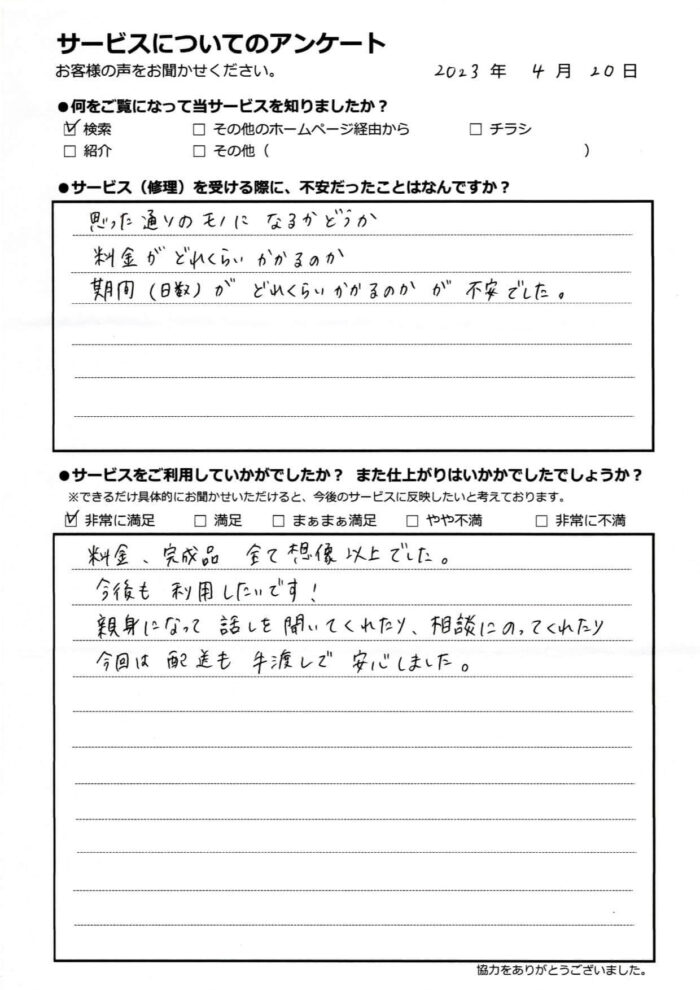 サービスについてのアンケート
お客様の声をお聞かせください。
2023 年 4 月 20 日
●何をご覧になって当サービスを知りましたか？
☑ 検索 □ その他のホームページ経由から □ チラシ
□ 紹介 □ その他（ ）
●サービス（修理）を受ける際に、不安だったことはなんですか？
思った通りのモノに なるかどうか
料金が どれくらい かかるのか
期間（日数）が どれくらいかかるのか が 不安でした。
●サービスをご利用していかがでしたか？ また仕上がりはいかかでしたでしょうか？
※できるだけ具体的にお聞かせいただけると、今後のサービスに反映したいと考えております。
☑ 非常に満足 □ 満足 □ まぁまぁ満足 □ やや不満 □ 非常に不満
料金、完成品 全て想像以上でした。
今後も 利用したいです！
親身になって 話しを聞いてくれたり、相談にのってくれたり
今回は 配送も 手渡しで 安心しました。
協力をありがとうございました。